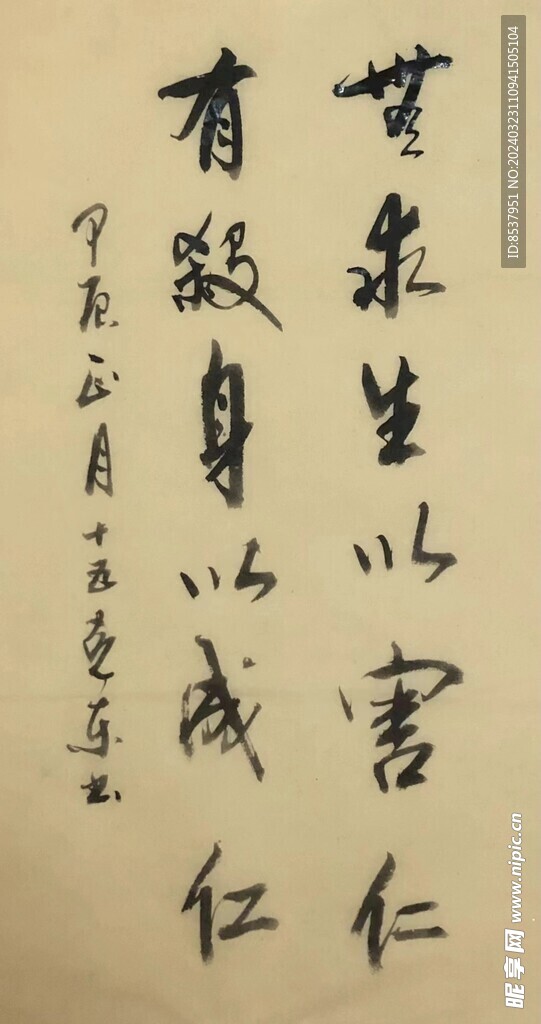 無求生以害仁
有殺身以成仁
甲辰正月十五克東书
ID:8537951 NO:20240323110941505104
昵享网 www.nipic.cn